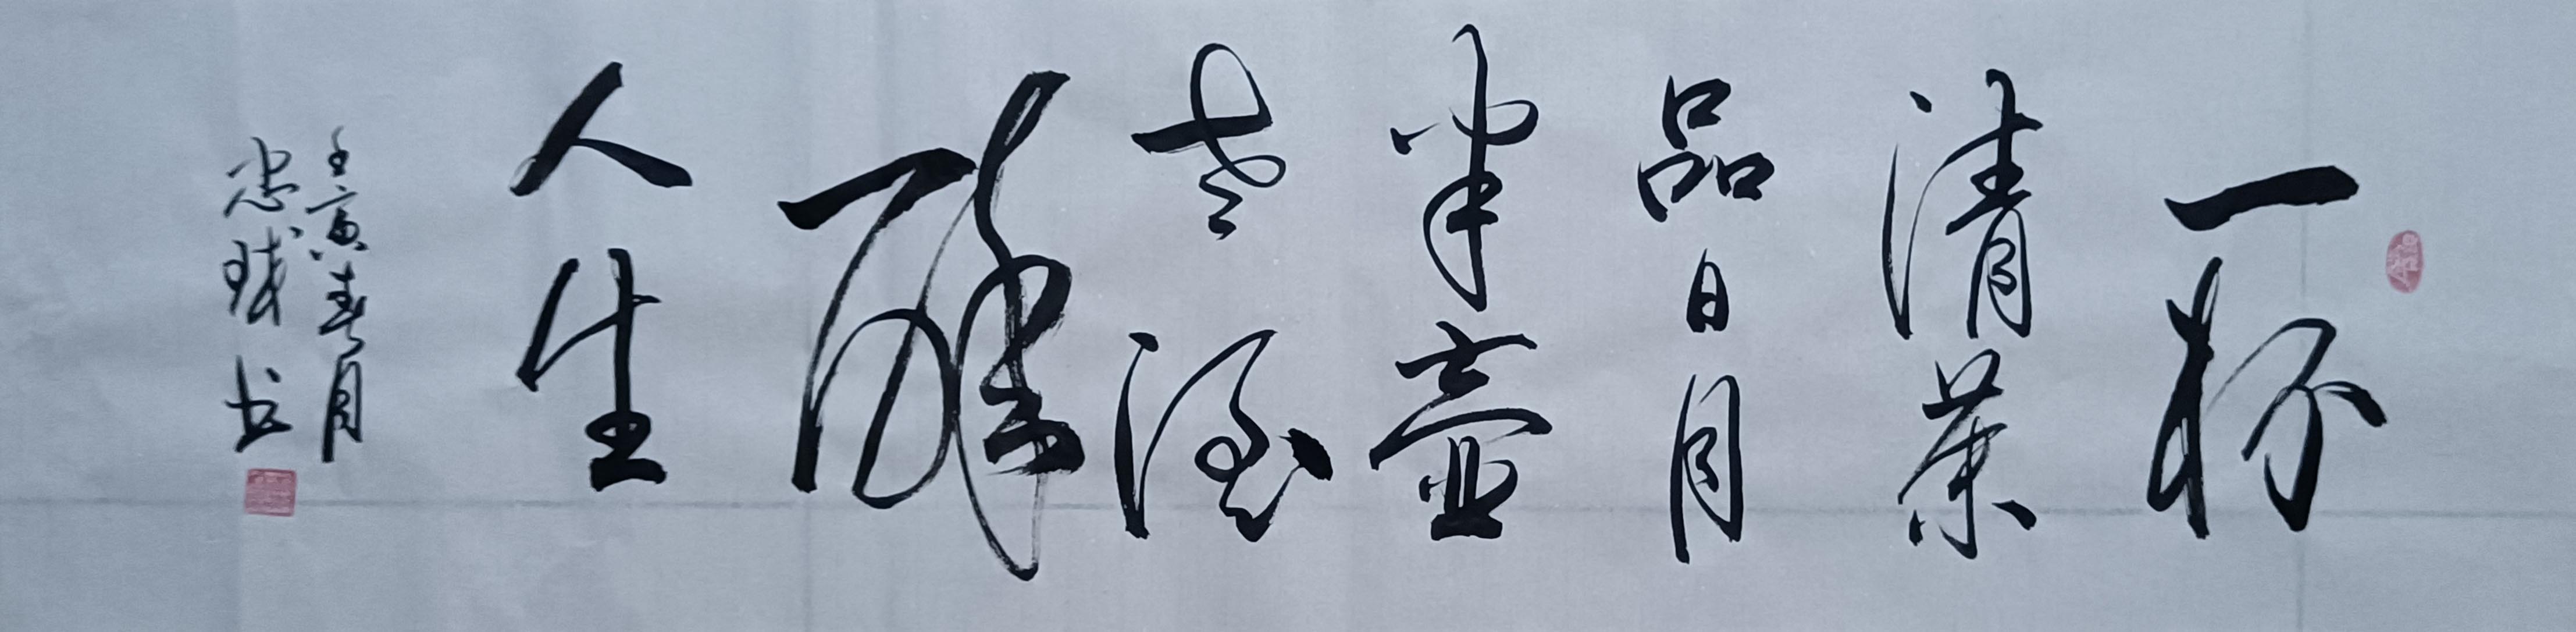 一杯
清茶
品日月
半壶
老酒
醉
人生
壬寅春月
忠钱书